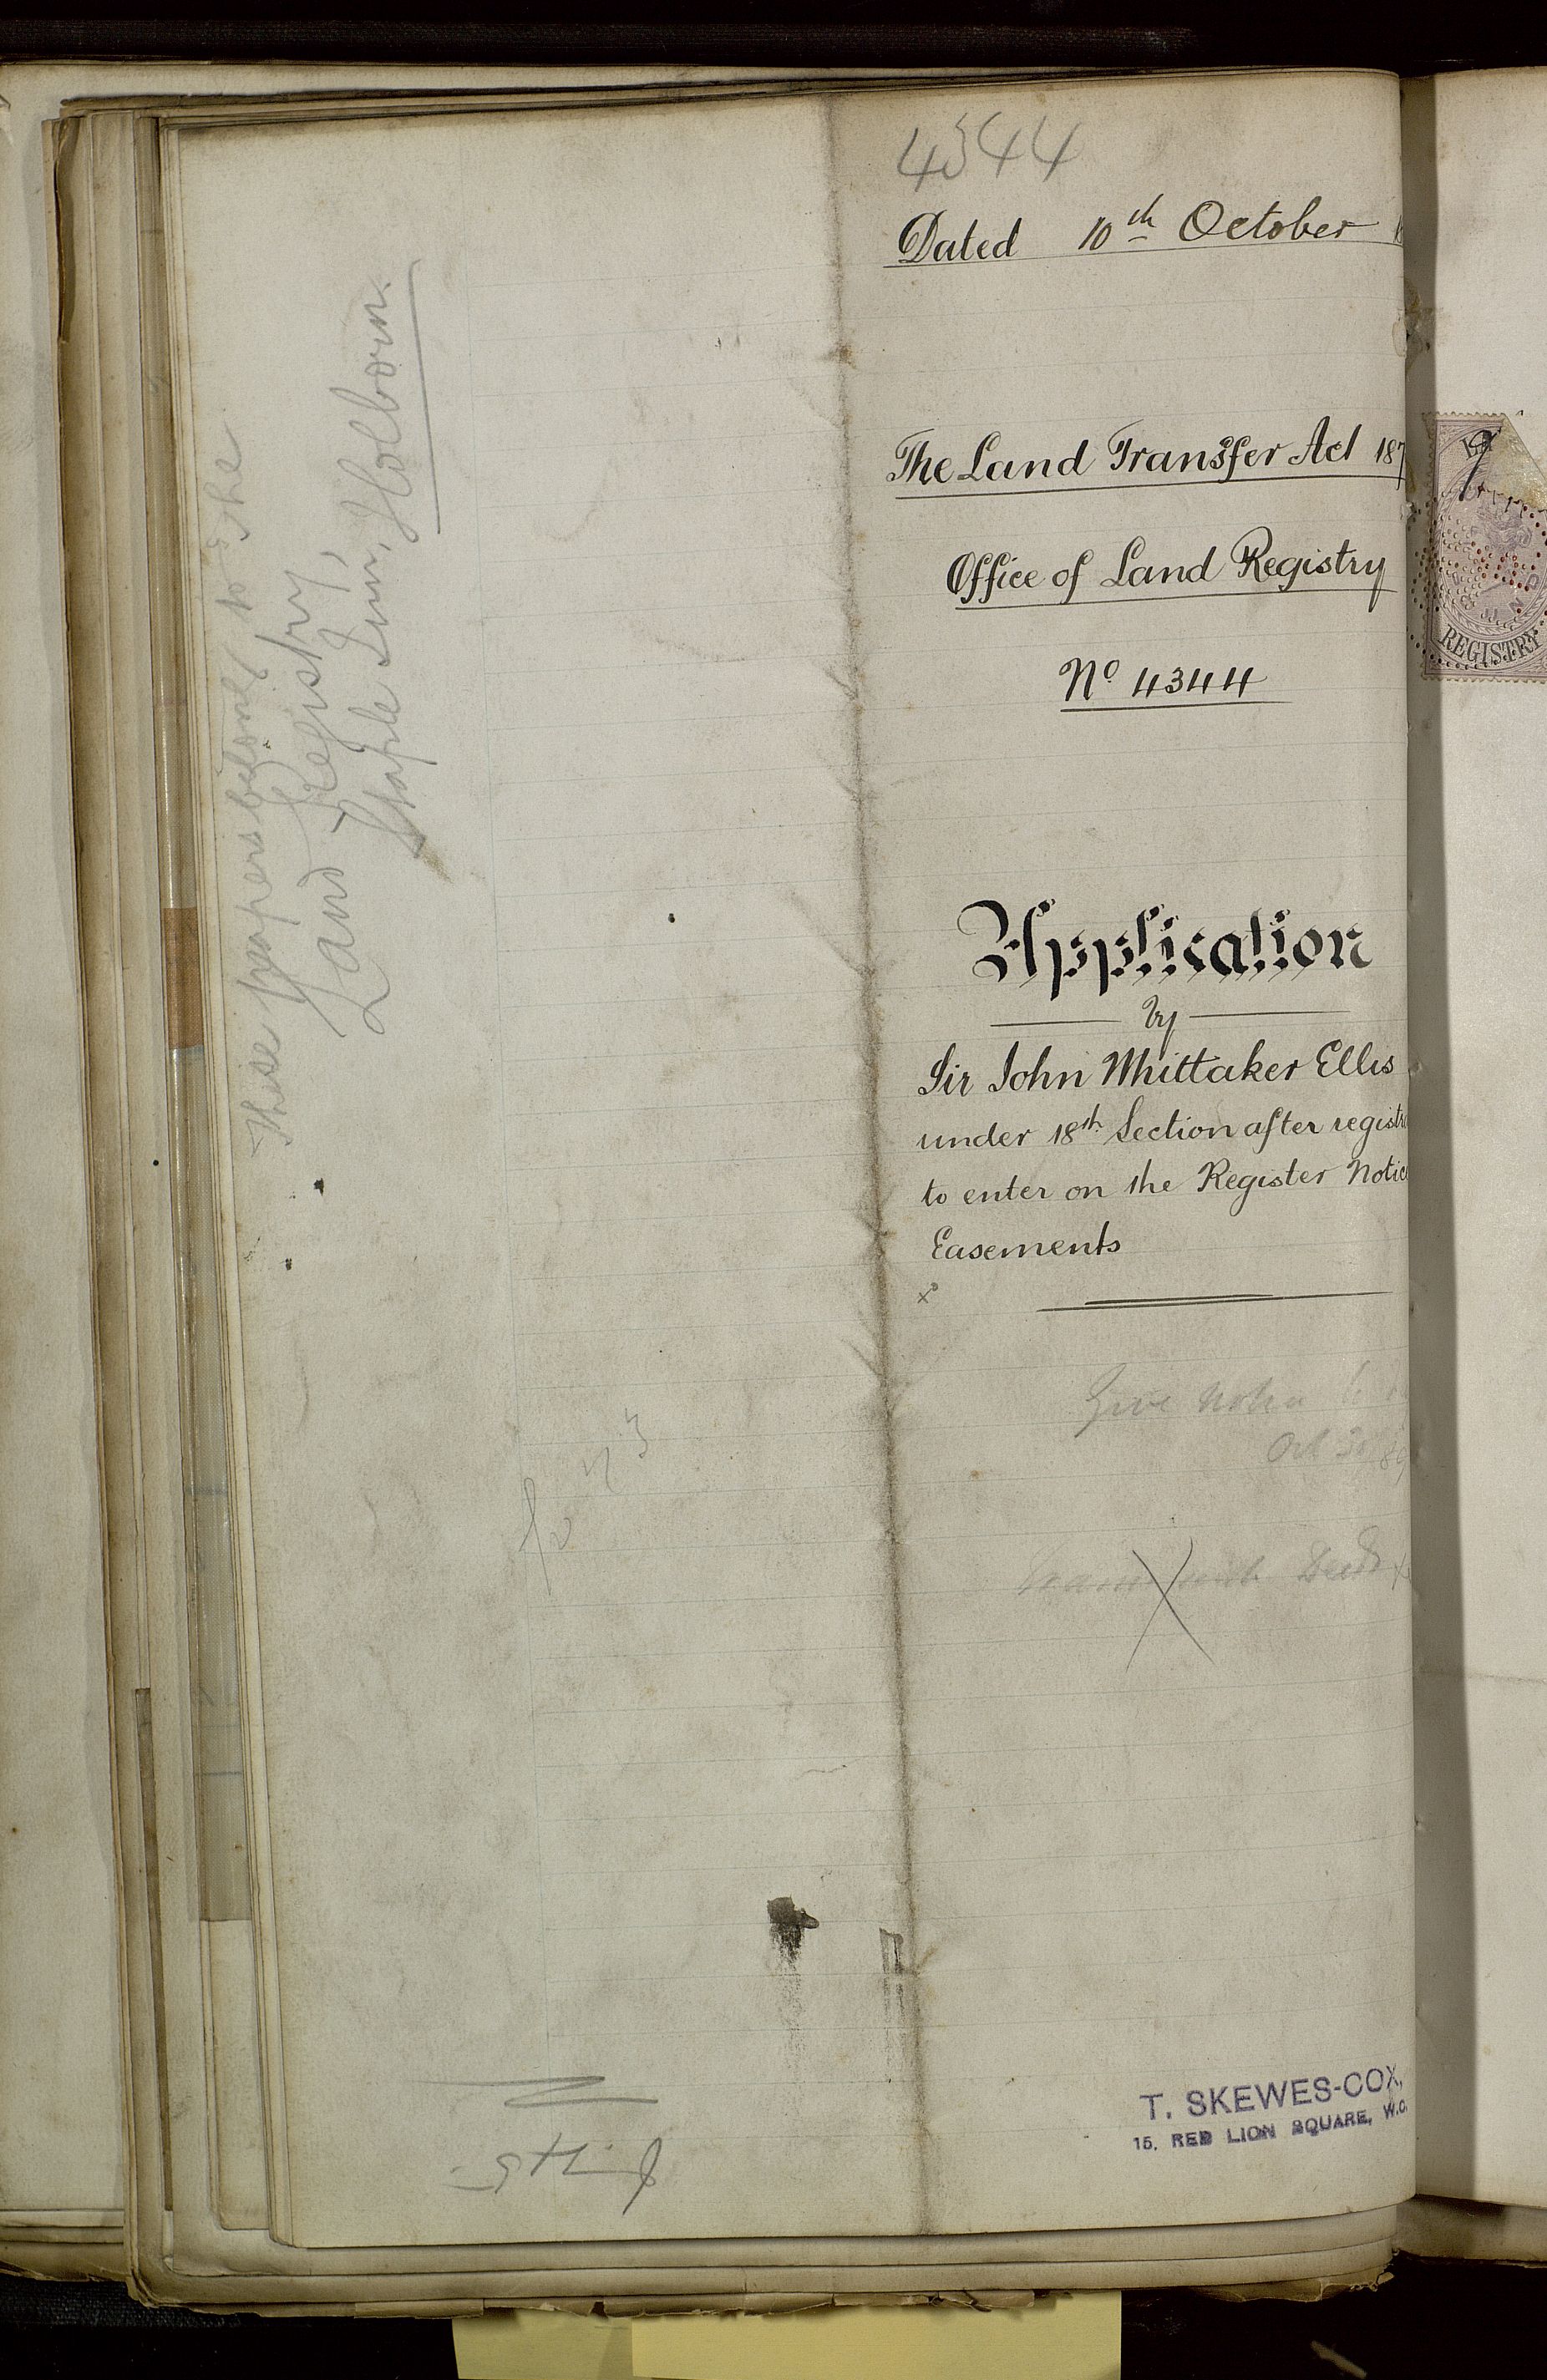 4344
Dated 10th October
The Land Transfer Act 187
Office of Land Registry
No 4344
Application
by
Sir John Whittaker Ellis
under 18th Section after registr
to enter on the Register Notice
Easements
x
Give
Oct 30/89
Deeds
T. SKEWES-COX,
15, RED LION SQUARE, W.C.
These papers belong to the
Land Registry,
Staple Inn, Holborn.
REGISTRY